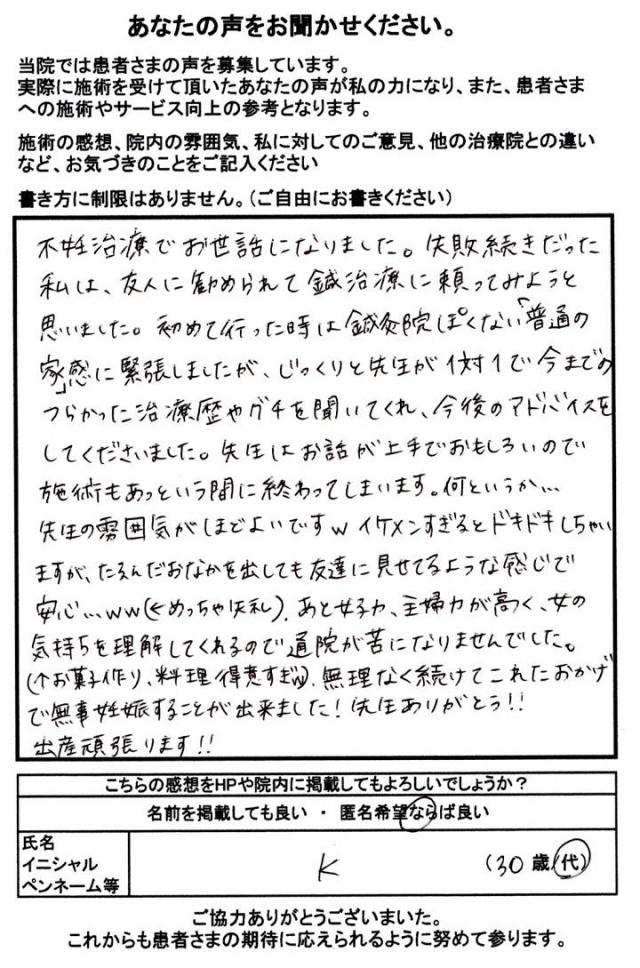 あなたの声をお聞かせください。
当院では患者さまの声を募集しています。
実際に施術を受けて頂いたあなたの声が私の力になり、また、患者さま
への施術やサービス向上の参考となります。
施術の感想、院内の雰囲気、私に対してのご意見、他の治療院との違い
など、お気づきのことをご記入ください
書き方に制限はありません。（ご自由にお書きください）
不妊治療でお世話になりました。失敗続きだった
私は、友人に勧められて鍼治療に頼ってみようと
思いました。初めて行った時は鍼灸院ぽくない「普通の
家」感に緊張しましたが、じっくりと先生が1対1で今までの
つらかった治療歴やグチを聞いてくれ、今後のアドバイスを
してくださいました。先生はお話が上手でおもしろいので
施術もあっという間に終わってしまいます。何というか…
先生の雰囲気がほどよいですw イケメンすぎるとドキドキしちゃい
ますが、たるんだおなかを出しても友達に見せてるような感じで
安心…ww(←めっちゃ失礼)、あと女子力、主婦力が高く、女の
気持ちを理解してくれるので通院が苦になりませんでした。
(↑お菓子作り、料理得意すぎw)、無理なく続けてこれたおかげ
で無事妊娠することが出来ました！先生ありがとう!!
出産頑張ります!!
こちらの感想をHPや院内に掲載してもよろしいでしょうか？
名前を掲載しても良い ・ 匿名希望ならば良い
氏名
イニシャル
ペンネーム等
K
（30歳/代）
ご協力ありがとうございまいた。
これからも患者さまの期待に応えられるように努めて参ります。